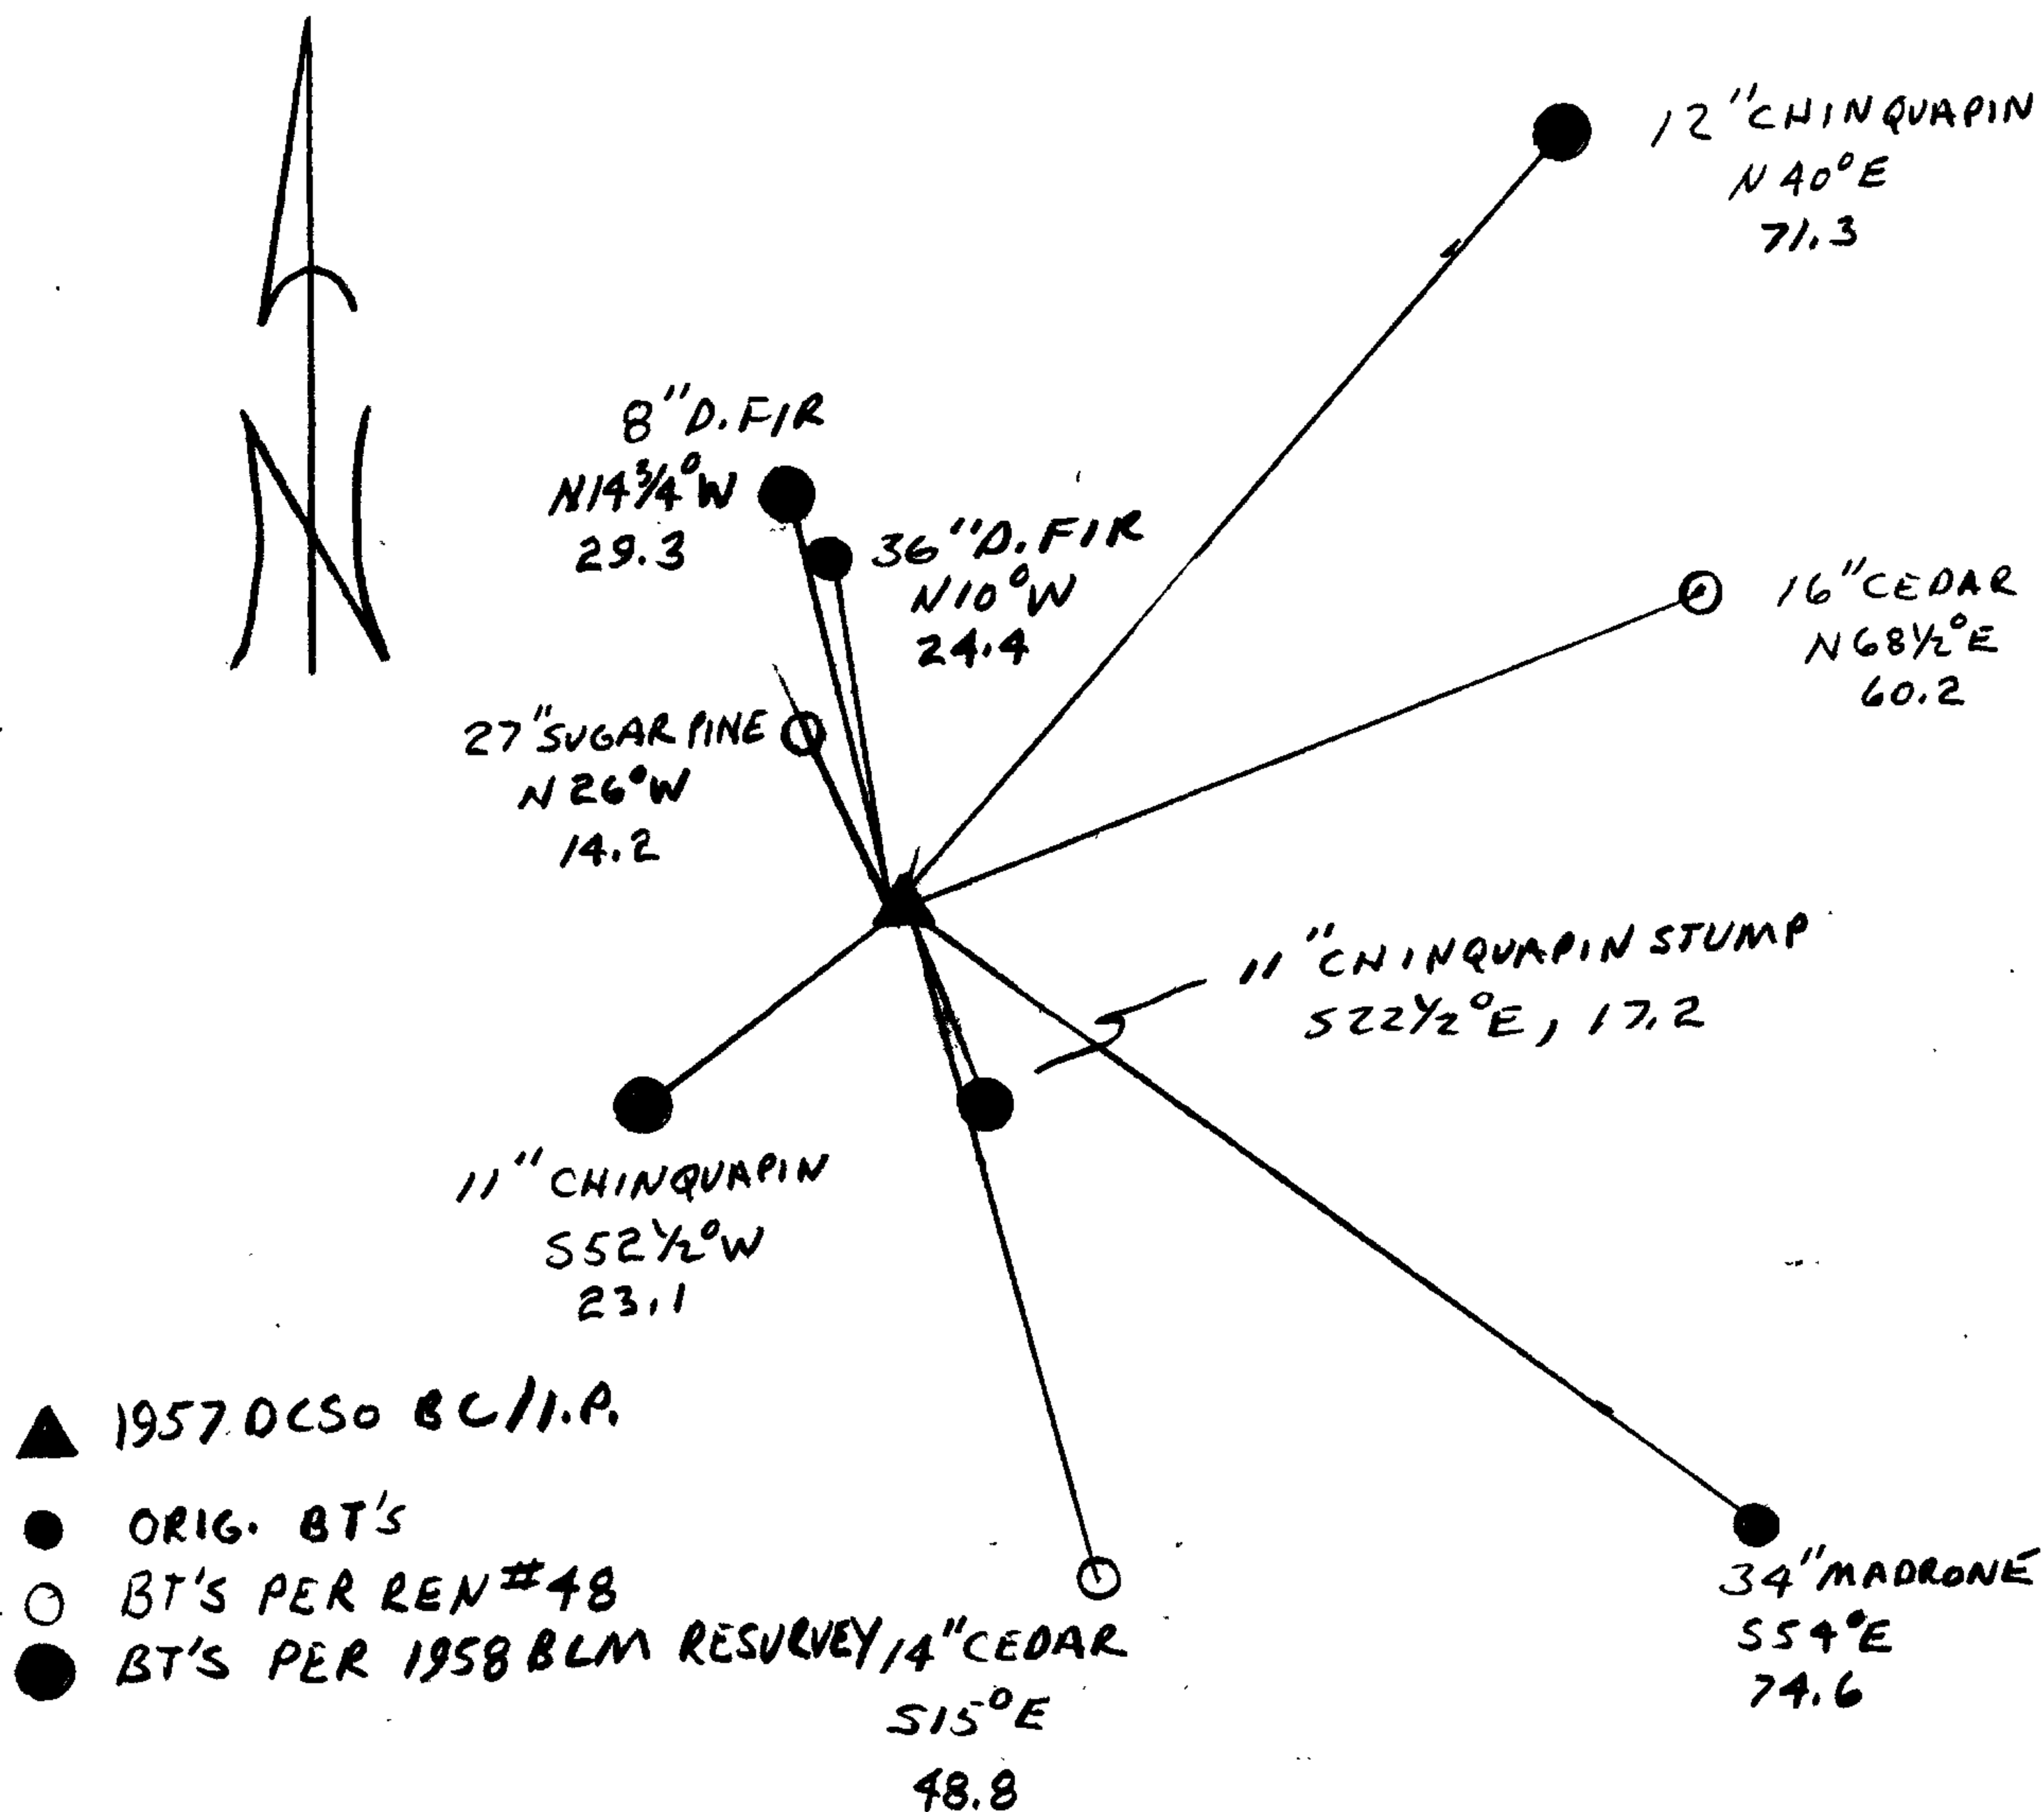 12" CHINQUAPIN
N 40° E
71.3
8" D. FIR
N 14 3/4° W
29.3
36" D. FIR
N 10° W
24.4
16" CEDAR
N 68 1/2° E
60.2
27" SUGAR PINE
N 26° W
14.2
11" CHINQUAPIN STUMP
S 22 1/2° E, 17.2
11" CHINQUAPIN
S 52 1/2° W
23.1
N
▲ 1957 DCSO BC/I.P.
● ORIG. BT'S
○ BT'S PER REN #48
● BT'S PER 1958 BLM RESURVEY
14" CEDAR
S 15° E
48.8
34" MADRONE
S 54° E
74.6